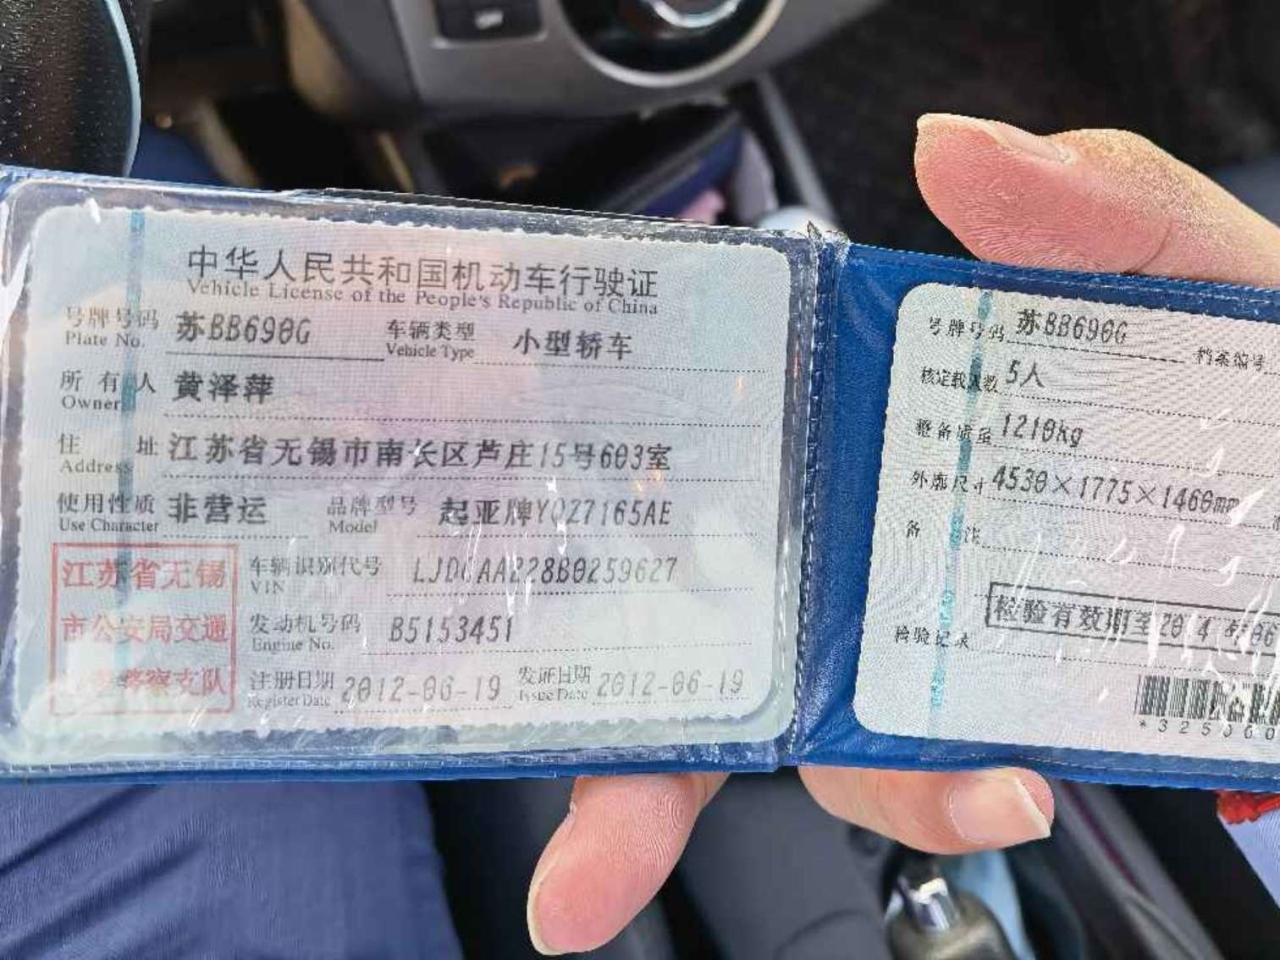 中华人民共和国机动车行驶证
Vehicle License of the People's Republic of China
号牌号码 苏BB690G 车辆类型 小型轿车
Plate No. Vehicle Type
所有人 黄泽萍
Owner
住址 江苏省无锡市南长区芦庄15号603室
Address
使用性质 非营运 品牌型号 起亚牌YQZ7165AE
Use Character Model
车辆识别代号 LJDGAA228B0259627
VIN
发动机号码 B5153451
Engine No.
注册日期 2012-06-19 发证日期 2012-06-19
Register Date Issue Date
江苏省无锡
市公安局交通
警察支队
号牌号码 苏BB690G 档案编号
核定载人数 5人
整备质量 1210kg
外廓尺寸 4530×1775×1460mm
备注
检验记录 检验有效期至2014年06
*325060